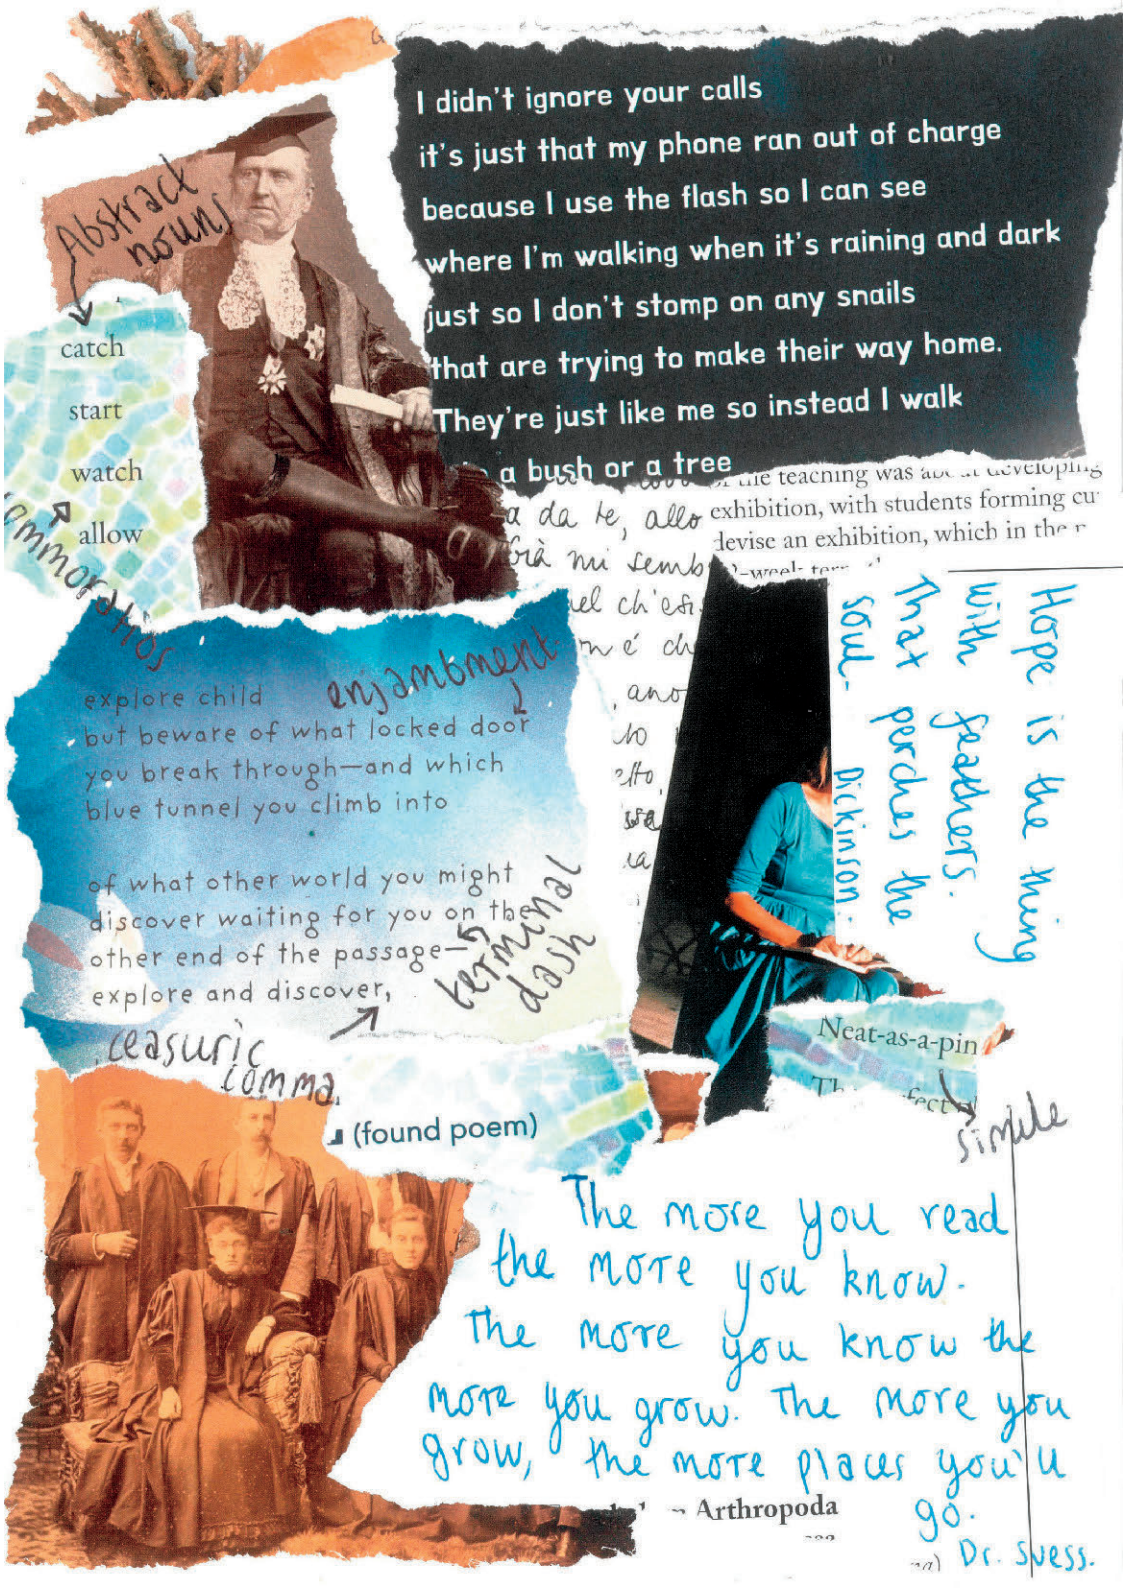 I didn't ignore your calls
it's just that my phone ran out of charge
because I use the flash so I can see
where I'm walking when it's raining and dark
just so I don't stomp on any snails
that are trying to make their way home.
They're just like me so instead I walk
a bush or a tree
Abstrack
nouns
catch
start
watch
allow
the teaching was developing
exhibition, with students forming
devise an exhibition, which in the
a da te, allo
mi
ch'esi
é
Hope is the thing
with feathers.
That perches the
soul- Dickinson.
enjambment.
explore child
but beware of what locked door
you break through—and which
blue tunnel you climb into
of what other world you might
discover waiting for you on the
other end of the passage—
explore and discover,
terminal
dash
ceasuric
comma.
Neat-as-a-pin
simile
(found poem)
The more you read
the more you know.
The more you know the
more you grow. The more you
grow, the more places you'll
go.
Dr. Suess.
Arthropoda